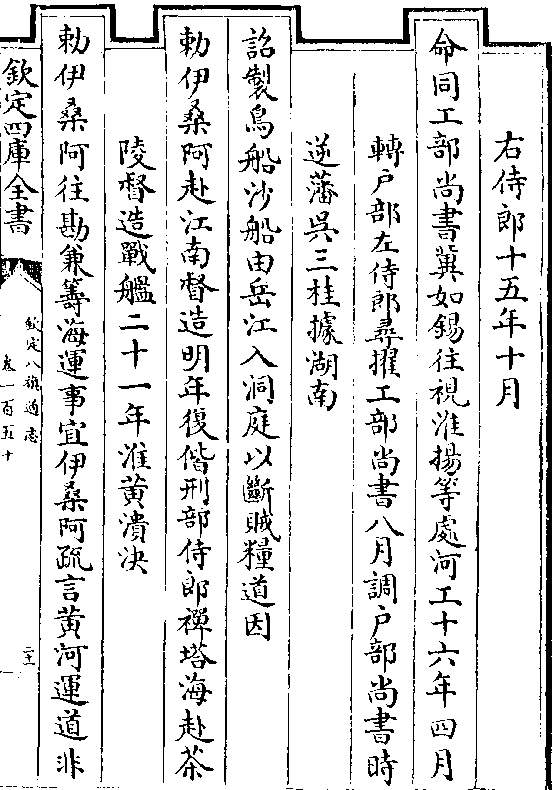 右侍郎十五年十月
命同工部尚書冀如錫往視淮揚等處河工十六年四月
轉户部左侍郎尋擢工部尚書八月調户部尚書時
逆藩吳三桂據湖南
詔製鳥船沙船由岳江入洞庭以斷賊糧道因
勅伊桑阿赴江南督造明年復偕刑部侍郎禪塔海赴茶
陵督造戰艦二十一年淮黄潰決
勅伊桑阿往勘兼籌海運事宜伊桑阿疏言黄河運道非
欽定四庫全書
欽定八旗通志
卷一百五十
二十二